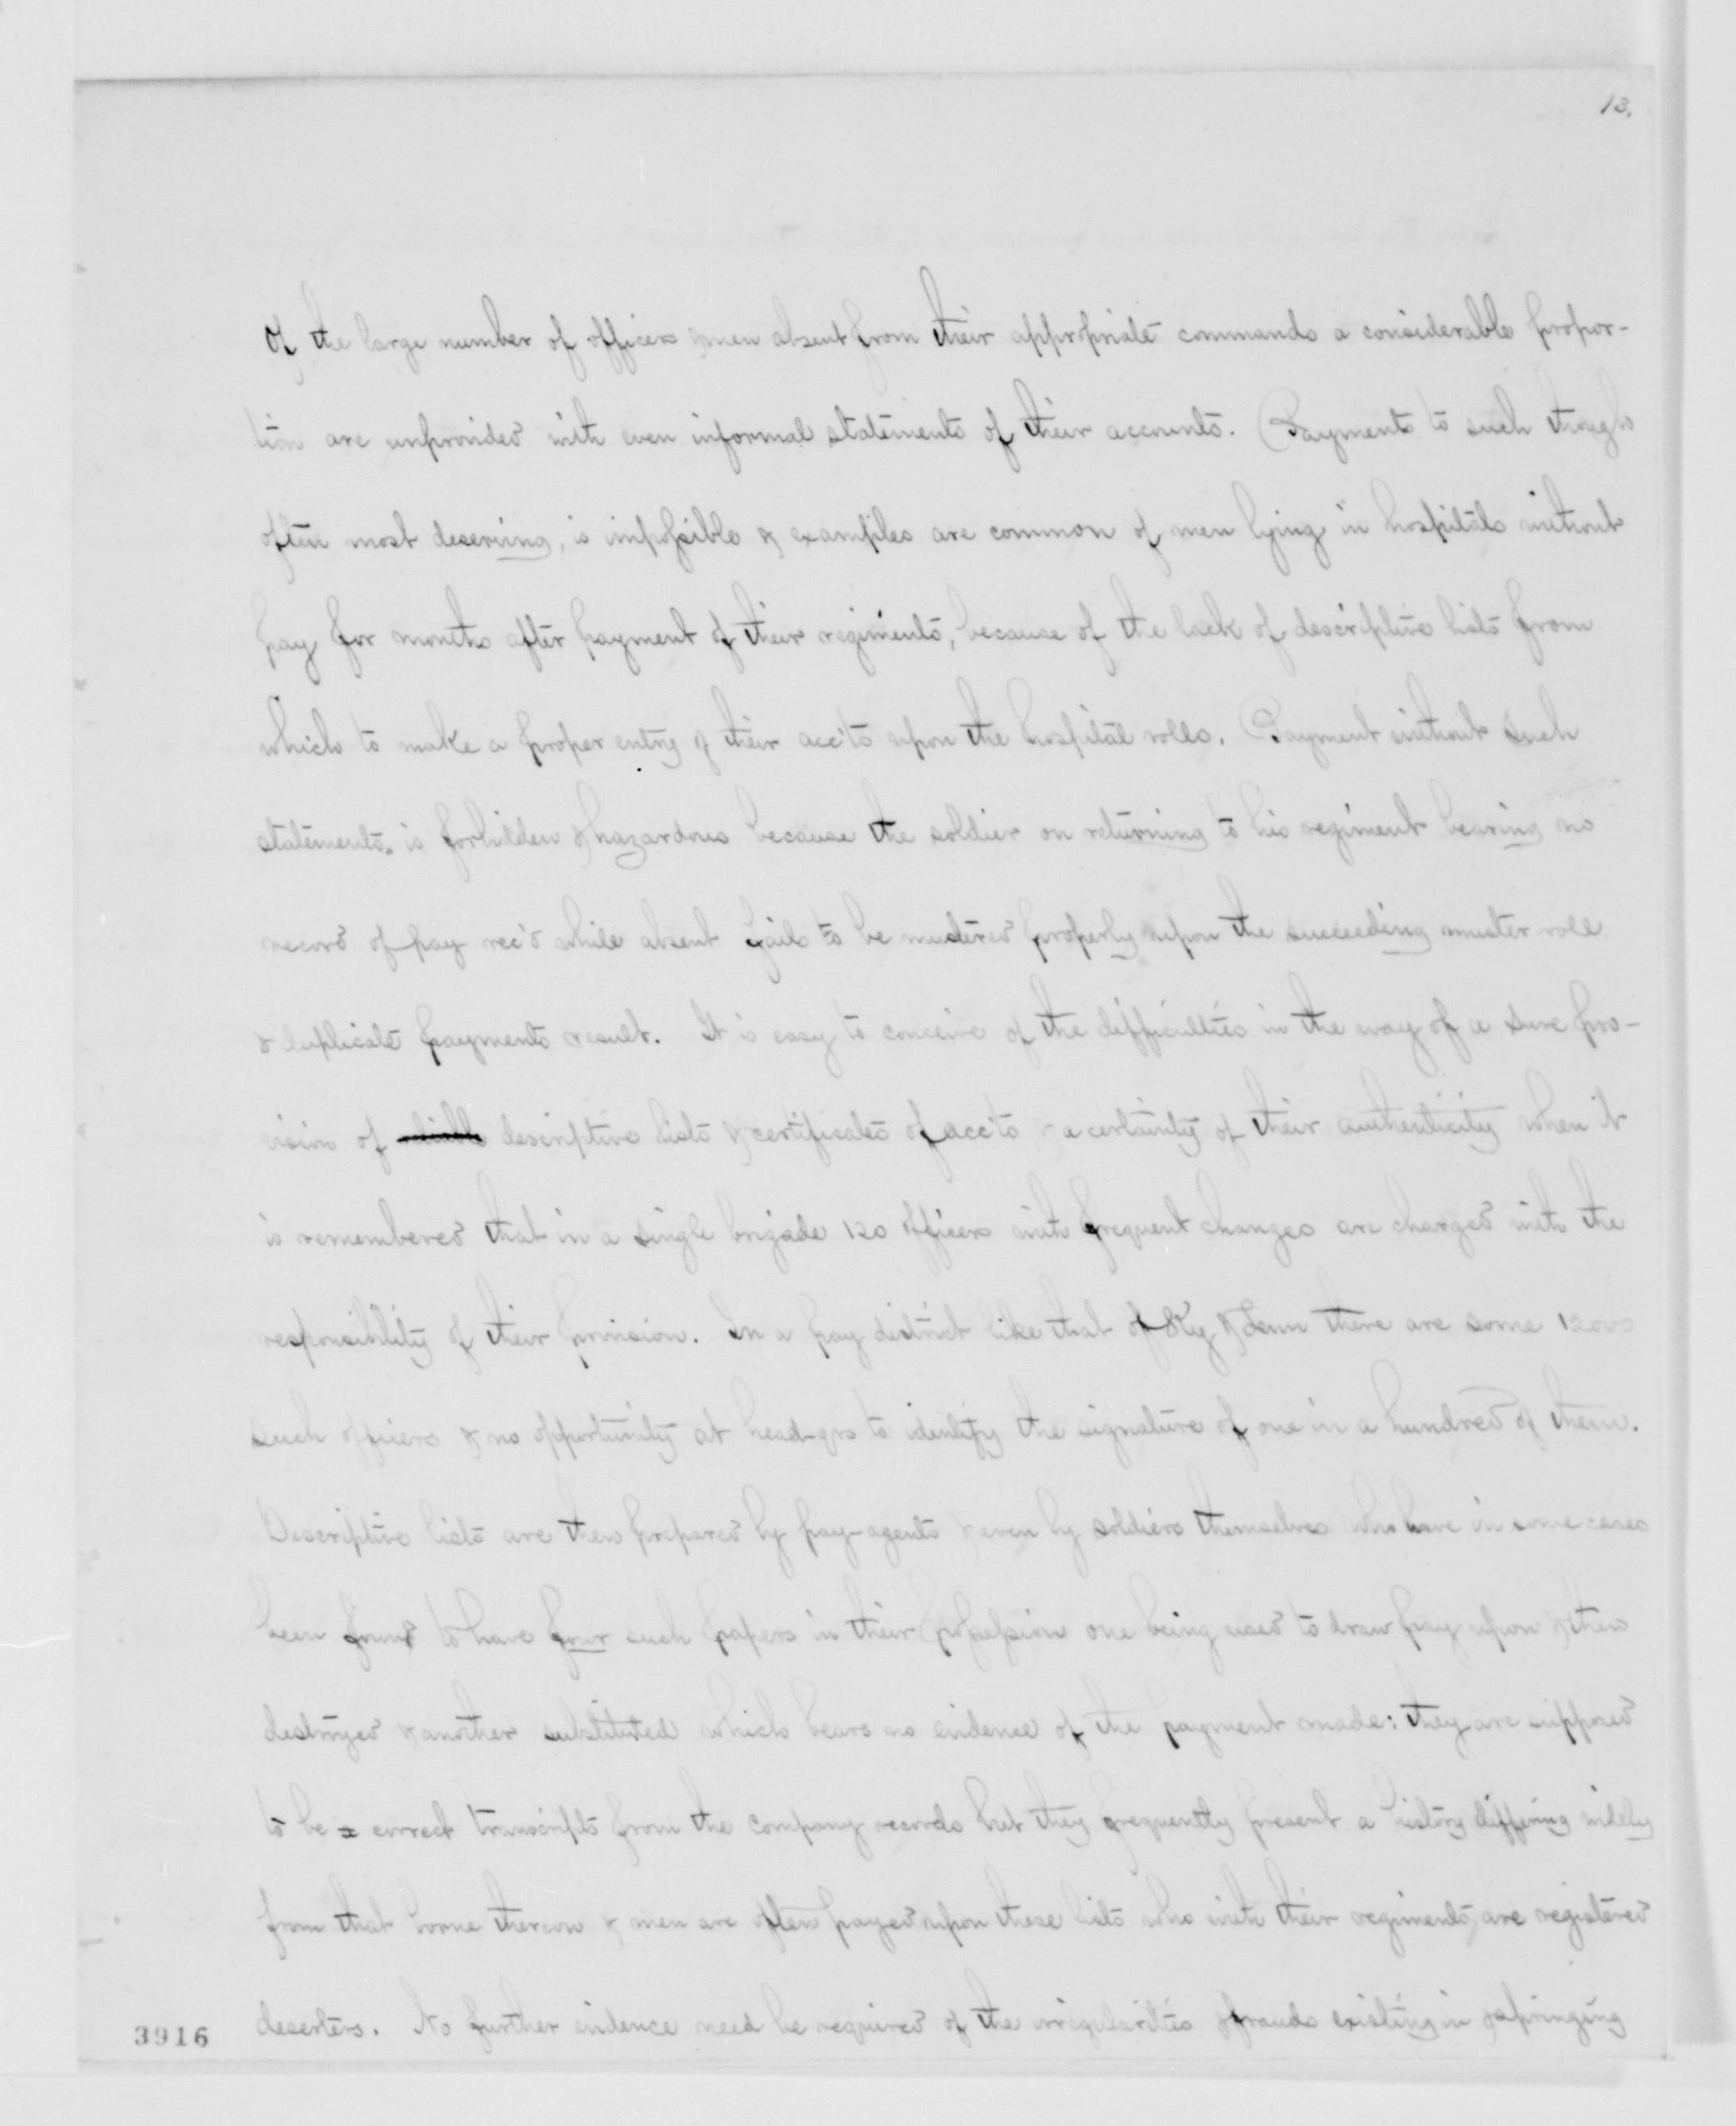 13.
Of the large number of officers & men absent from their appropriate commands a considerable propor-
tion are unprovided with even informal statements of their accounts. Payments to such though
often most deserving, is impossible & examples are common of men lying in hospitals without
pay for months after payment of their regiments, because of the lack of descriptive lists from
which to make a proper entry of their acc'ts upon the hospital rolls. Payment without such
statements is forbidden & hazardous because the soldier on returning to his regiment bearing no
record of pay rec'd while absent fails to be mustered properly upon the succeeding muster roll
& duplicate payments result. It is easy to conceive of the difficulties in the way of a sure pro-
vision of descriptive lists & certificates of acc'ts & a certainty of their authenticity when it
is remembered that in a single brigade 120 officers with frequent changes are charged with the
responsibility of their provision. In a pay district like that of Ky & Tenn there are some 12000
such officers & no opportunity at head-qrs to identify the signature of one in a hundred of them.
Descriptive lists are then prepared by pay-agents & even by soldiers themselves who have in some cases
been found to have four such papers in their possession one being used to draw pay upon & then
destroyed & another substituted which bears no evidence of the payment made: they are supposed
to be correct transcripts from the company records but they frequently present a history differing widely
from that borne thereon & men are often payed upon these lists who with their regiments are registered
deserters. No further evidence need be required of the irregularities & frauds existing in & springing
3916